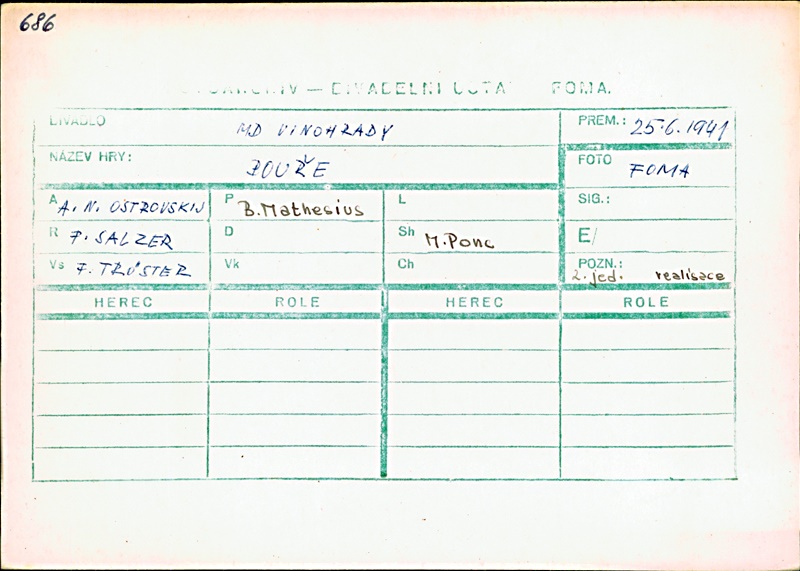 686
DIVADELNÍ ÚSTA FOMA.
DIVADLO MD VINOHRADY PREM.: 25.6.1941
NÁZEV HRY: BOUŘE FOTO FOMA
A A. N. OSTROVSKIJ P B. Mathesius L SIG.:
R F. SALZER D Sh M. Ponc E/
Vs F. TRÖSTER Vk Ch POZN.: 2. jed. realisace
HEREC ROLE HEREC ROLE